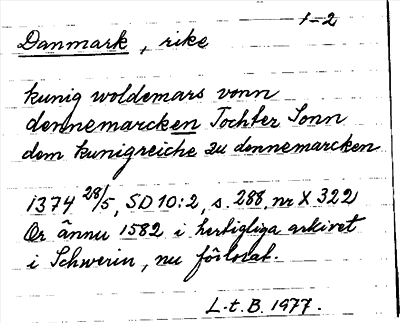 1-2
Danmark, rike
kunig woldemars vonn
dennemarcken Tochter Sonn
dem kunigreiche zu dennemarcken
1374 28/5, SD 10:2, s. 288, nr X 322
Or ännu 1582 i hertigliga arkivet
i Schwerin, nu förlorat.
L.t.B. 1977.